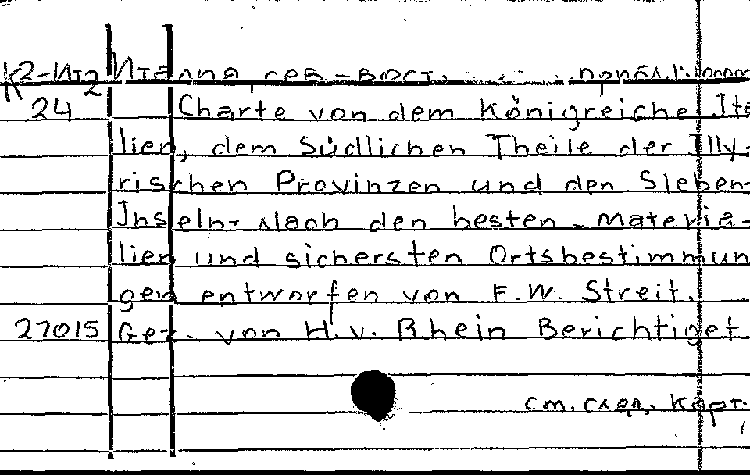 К2-Ит2 Италия, сев.-вост.
24 Charte von dem Königreiche Ita
lien, dem Südlichen Theile der Illy-
rischen Provinzen und den Sieben
Inseln. Nach den besten Materia-
lien und sichersten Ortsbestimmun
gen entworfen von F. W. Streit.
27015 Gez. von H. v. Rhein Berichtiget
см. след. карт.